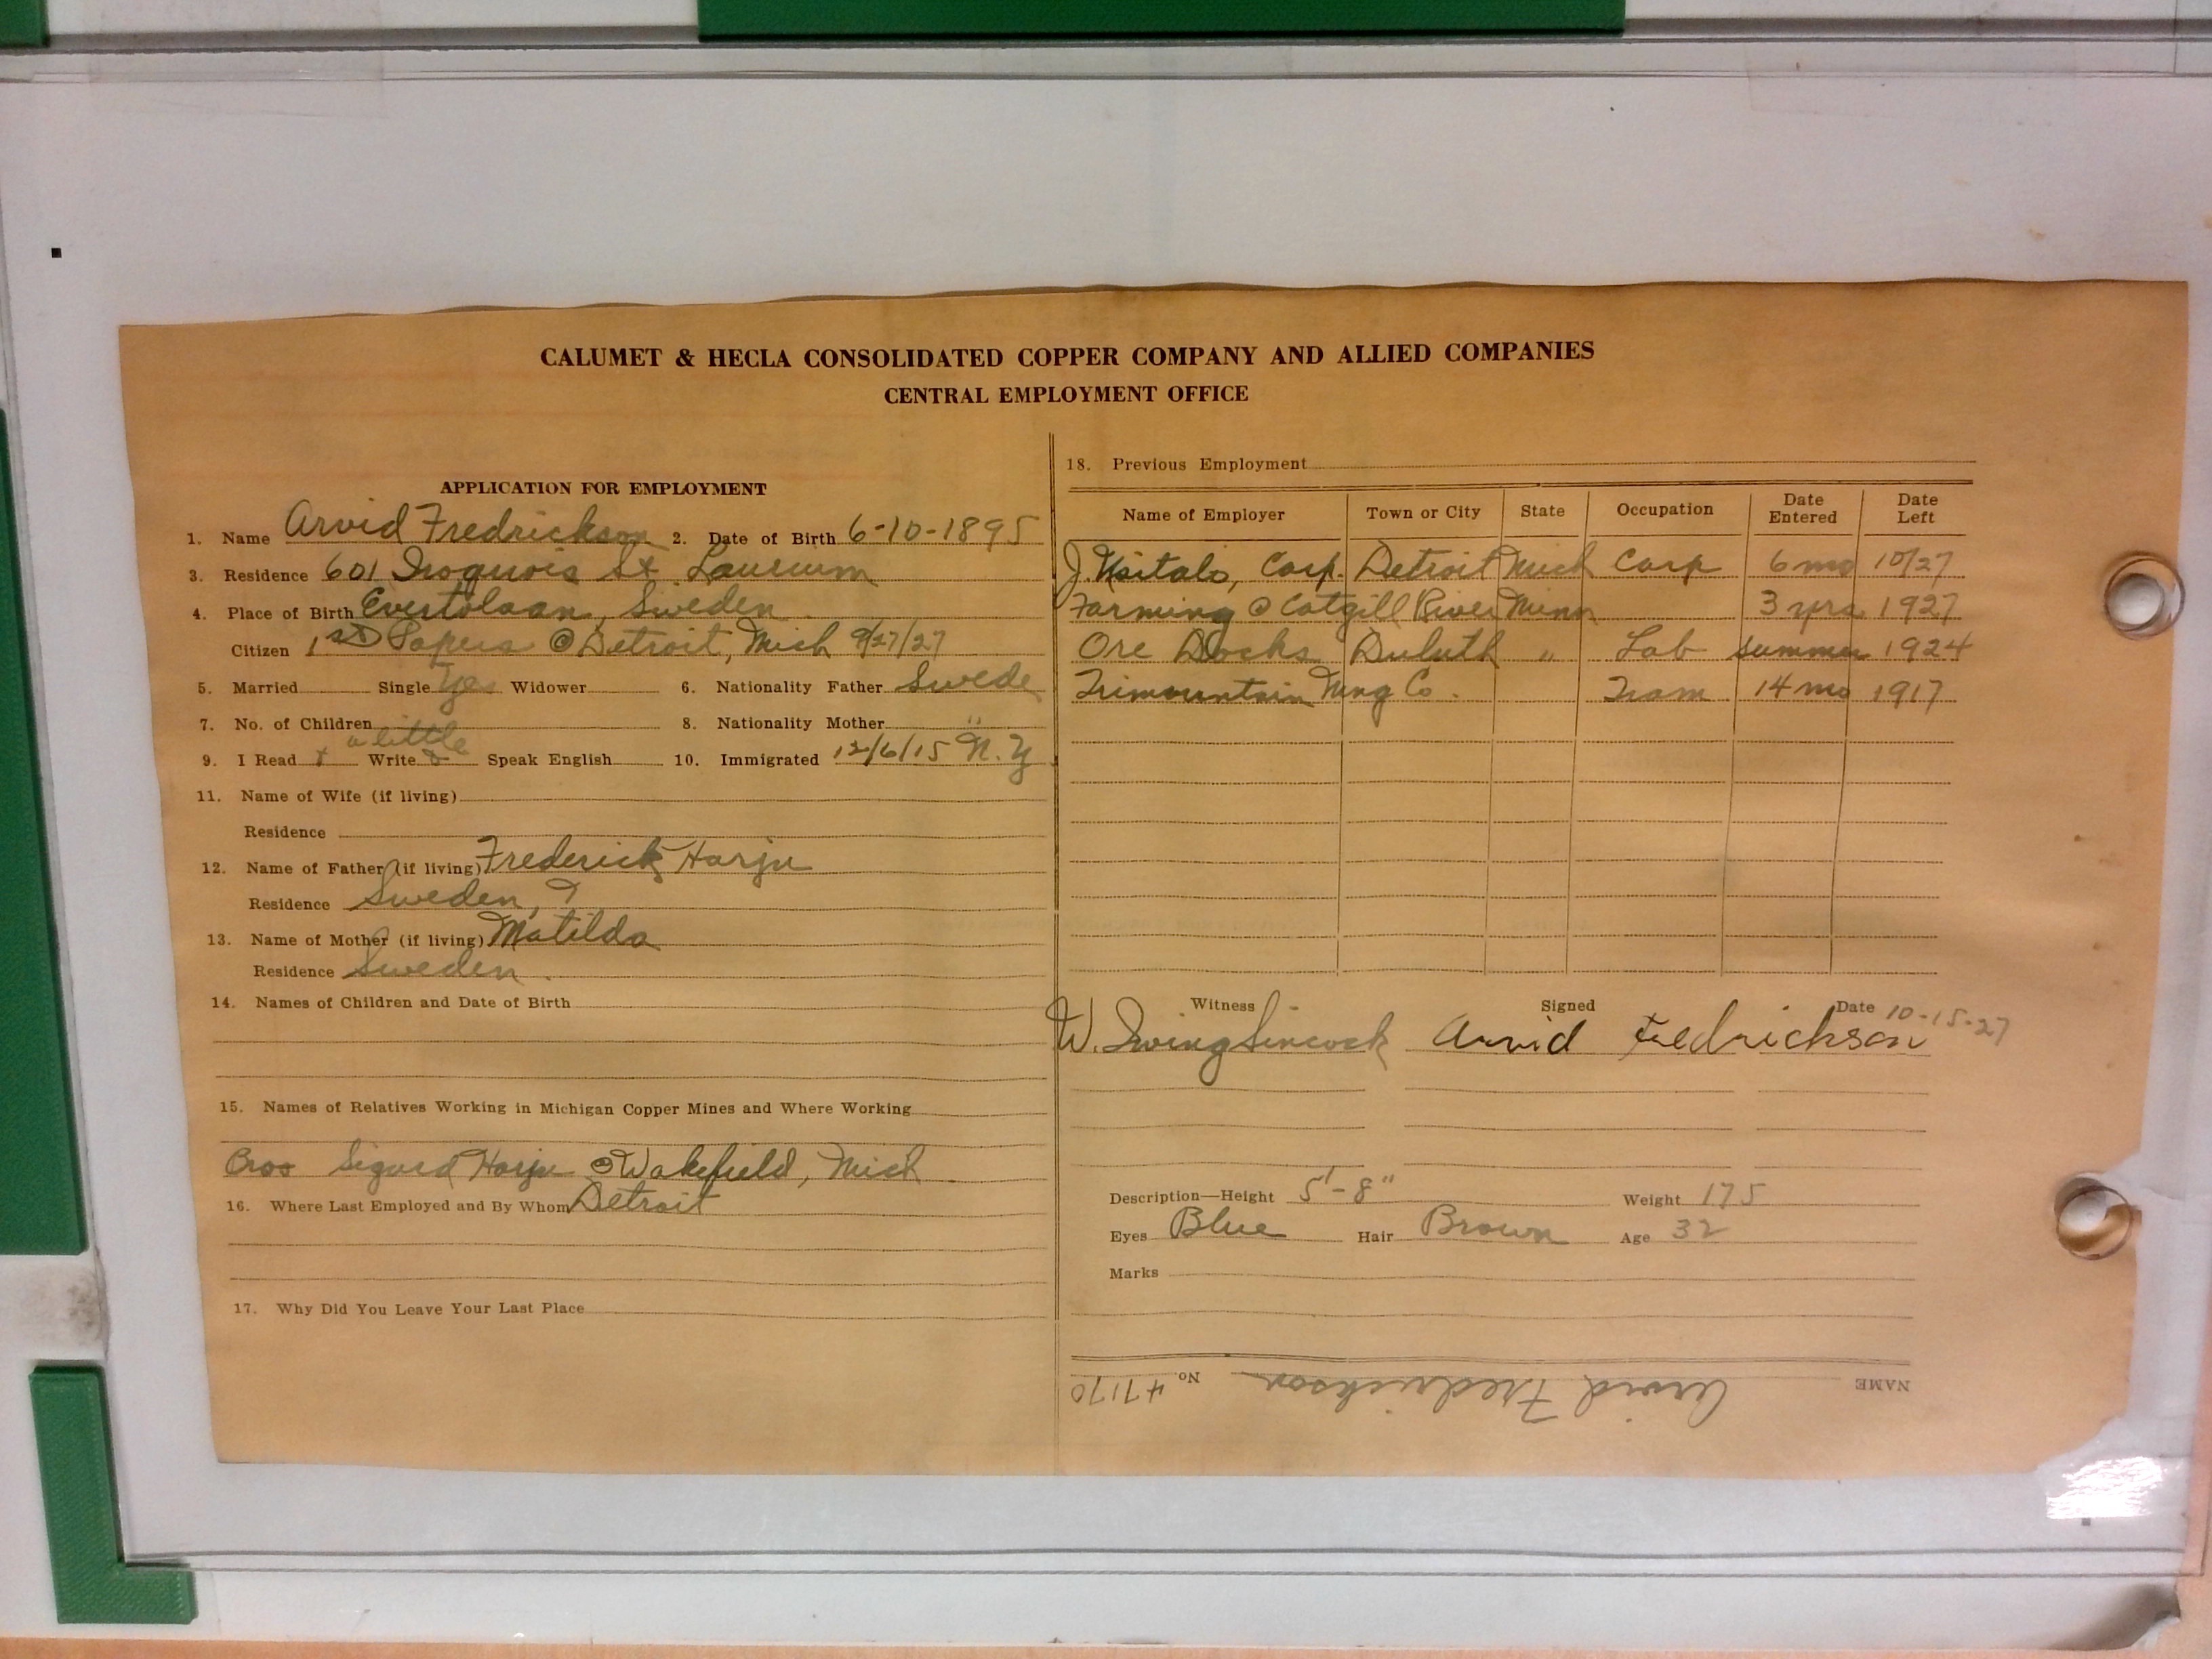 CALUMET & HECLA CONSOLIDATED COPPER COMPANY AND ALLIED COMPANIES
CENTRAL EMPLOYMENT OFFICE
APPLICATION FOR EMPLOYMENT
1. Name Arvid Fredrickson 2. Date of Birth 6-10-1895
3. Residence 601 Iroquois St Laurium
4. Place of Birth Sweden
Citizen 1st Papers @ Detroit, Mich 9/27/27
5. Married Single Yes Widower 6. Nationality Father Swede
7. No. of Children 8. Nationality Mother "
a little
9. I Read Write Speak English 10. Immigrated 12/6/15 N.Y
11. Name of Wife (if living)
Residence
12. Name of Father (if living) Frederick Harju
Residence Sweden, ?
13. Name of Mother (if living) Matilda
Residence Sweden.
14. Names of Children and Date of Birth
15. Names of Relatives Working in Michigan Copper Mines and Where Working
Bros Sigurd Harju @ Wakefield, Mich
16. Where Last Employed and By Whom Detroit
17. Why Did You Leave Your Last Place
18. Previous Employment
Name of Employer Town or City State Occupation Date Entered Date Left
J. Carp. Detroit Mich Carp 6 mo 10/27
Farming @ River Minn 3 yrs 1927
Ore Docks Duluth " Lab summer 1924
Trimountain Mng Co. Tram 14 mo 1917
Witness Signed Date 10-15-27
W. Irving Sincock Arvid Fredrickson
Description—Height 5'-8" Weight 175
Eyes Blue Hair Brown Age 32
Marks
NAME Arvid Fredrickson No. 47170